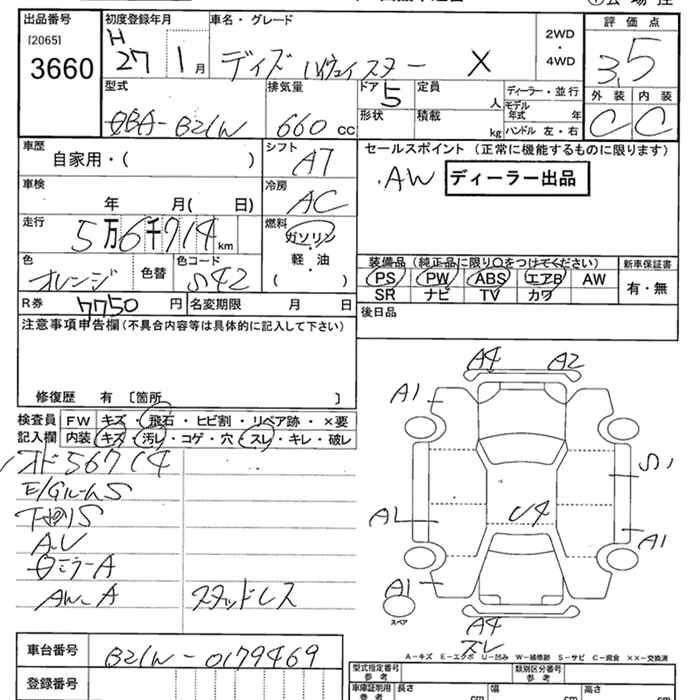 出品番号
[2065]
3660
初度登録年月
H 27 1 月
車名・グレード
デイズ ハイウェイスター X
2WD
・
4WD
評価点
3.5
外装 内装
C C
型式
DBA-B21W
排気量
660 cc
ドア 5
形状
定員 人
積載 kg
ディーラー・並行
モデル年式 年
ハンドル 左・右
車歴
自家用・( )
シフト
AT
車検
年 月( 日)
冷房
AC
走行
5万6千714 km
燃料
ガソリン
・
軽・油
( )
色
オレンジ
色替
色コード
S42
R券
7750 円
名変期限 月 日
セールスポイント (正常に機能するものに限ります)
.AW ディーラー出品
装備品 (純正品に限り〇をつけてください)
PS PW ABS エアB AW
SR ナビ TV カワ
新車保証書
有・無
後日品
注意事項申告欄(不具合内容等は具体的に記入して下さい)
修復歴 有 〔箇所 〕
検査員
記入欄
FW キズ・飛石・ヒビ割・リペア跡・×要
内装 キズ・汚レ・コゲ・穴・スレ・キレ・破レ
オド56714
E/GルームS
下廻リS
スタッドレス
A4 A2
A1
S1
A1
U4
A1
A4
スレ
スペア
A-キズ E-エクボ U-凹み W-補修跡 S-サビ C-腐食 ××-交換済
車台番号
B21W-0179469
登録番号
型式指定番号
参考
類別区分番号
参考
車庫証明用
参考
長さ cm
幅 cm
高さ cm